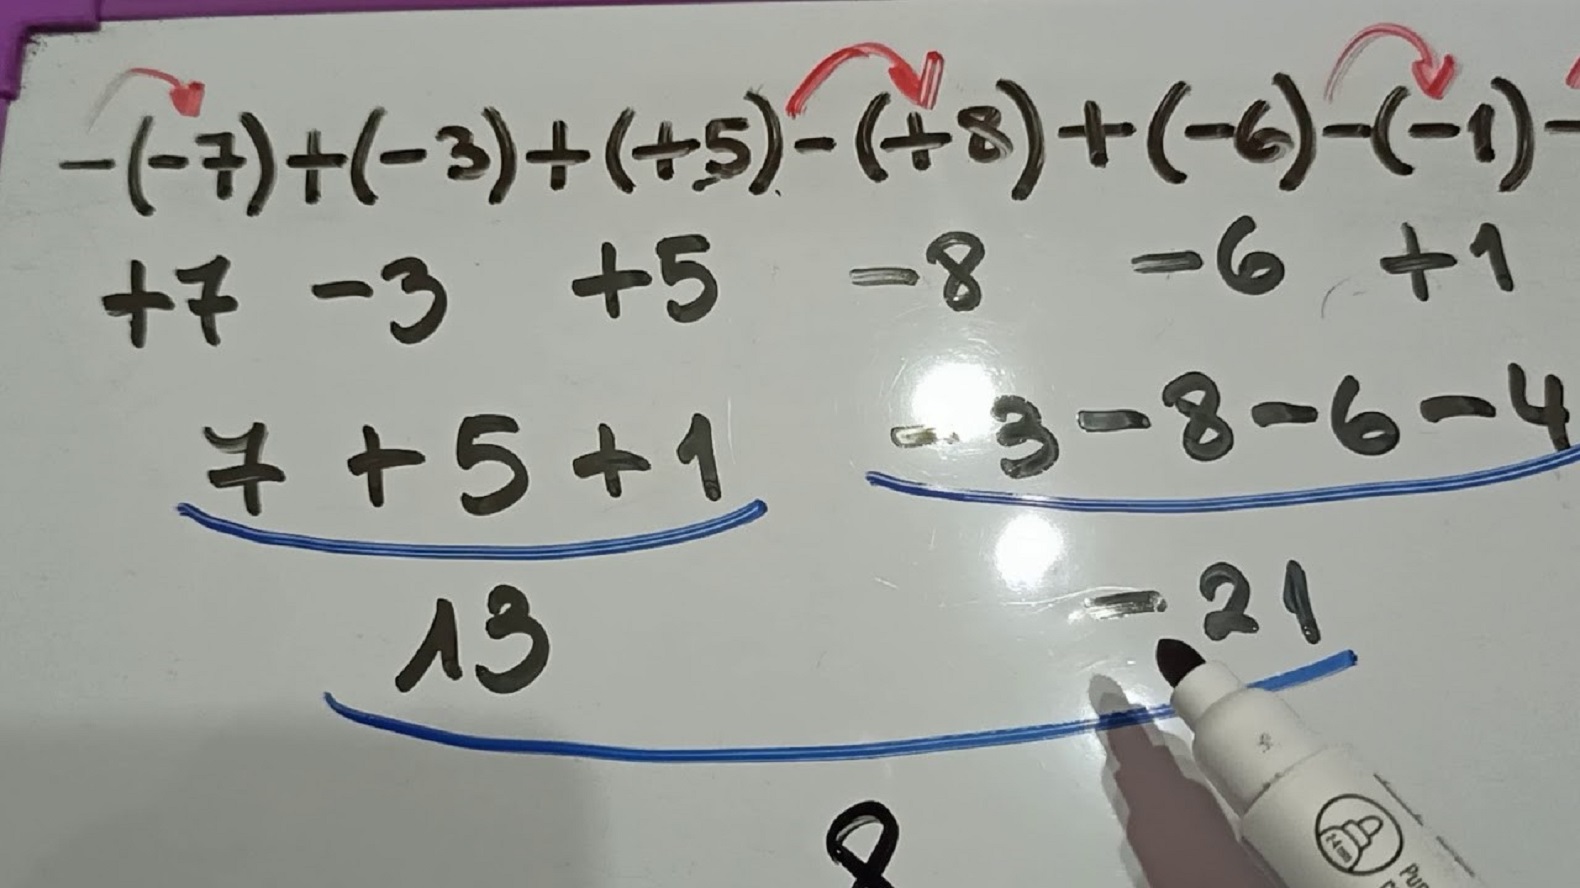 -(-7)+(-3)+(+5)-(+8)+(-6)-(-1)-
+7 -3 +5 -8 -6 +1
7 + 5 + 1 - 3 - 8 - 6 - 4
13 - 21
8